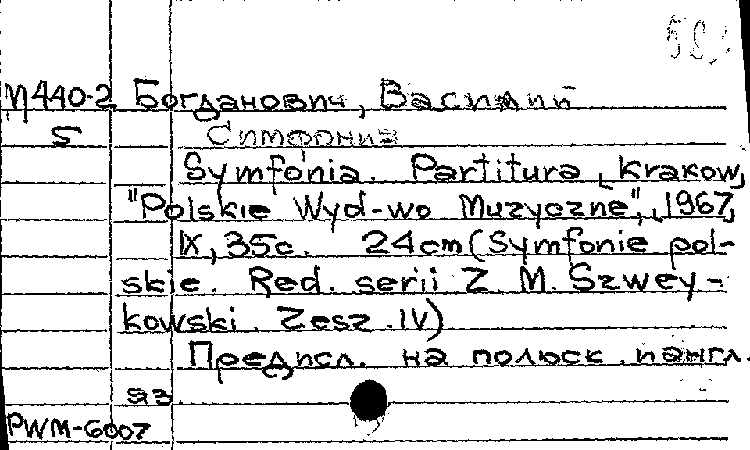 М440-2 Богданович, Василий
5 Симфония
Symfonia. Partitura, Krakow,
"Polskie Wyd-wo Muzyczne", 1967,
IX, 35c. 24cm (Symfonie pol-
skie. Red. serii Z. M. Szwey-
kowski. Zesz. IV)
Предисл. на польск. и англ.
яз.
PWM-6007